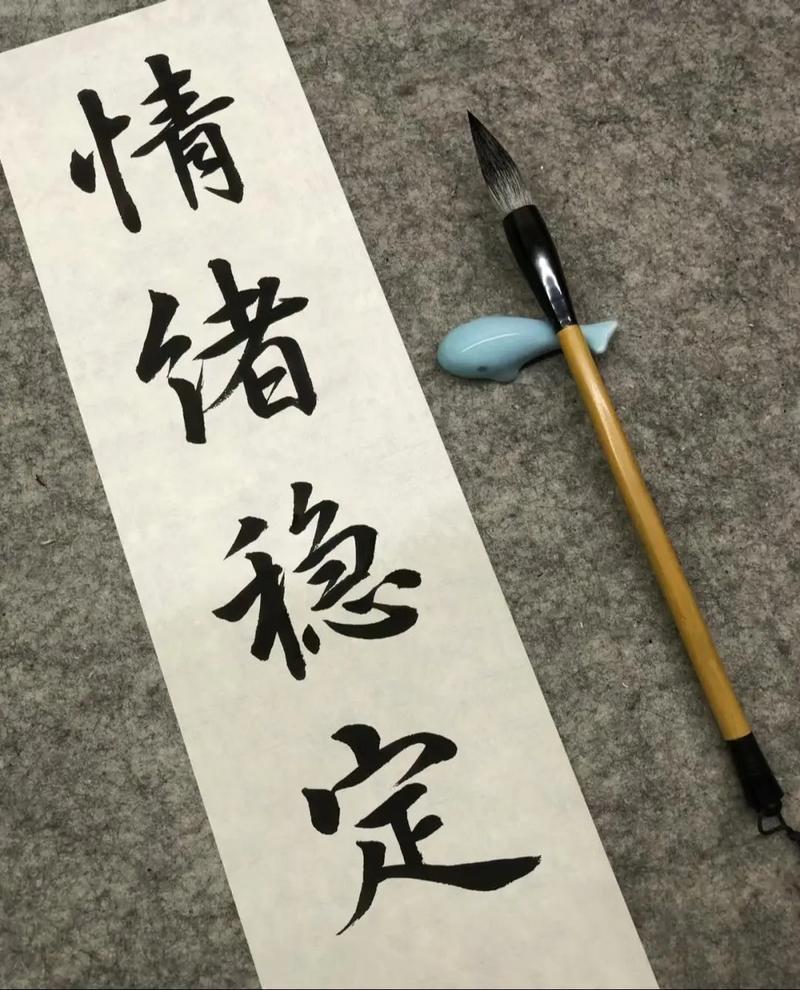 情绪稳定